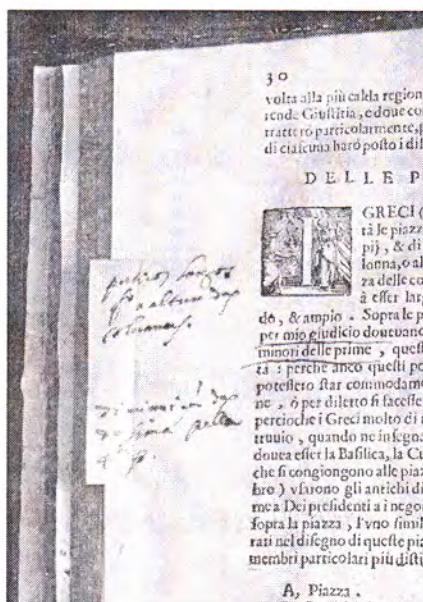 30
volta alla più calda region
rende Giuſtitia, e doue co
tratterò particolarmente,
di ciaſcuna harò poſto i diſ
DELLE P
I GRECI
rà le piazz
pij, & di
lonna, o al
za delle co
à eſſer lar
do, & ampio . Sopra le p
per mio giudicio doueuano
minori delle prime , queſ
tà : perche anco queſti po
poteſſero ſtar commodam
ne , ò per diletto ſi faceſſe
percioche i Greci molto di
truuio , quando ne inſegna
douea eſſer la Baſilica, la Cu
che ſi congiongono alle piaz
bro ) vſarono gli antichi di
me a Dei preſidenti a i negoi
ſopra la piazza , l'vno ſimil
rati nel diſegno di queſte pia
membri particolari più diſti
A, Piazza .
largos
altura das
colunas.
diminuir das
de sima pella
4 p.